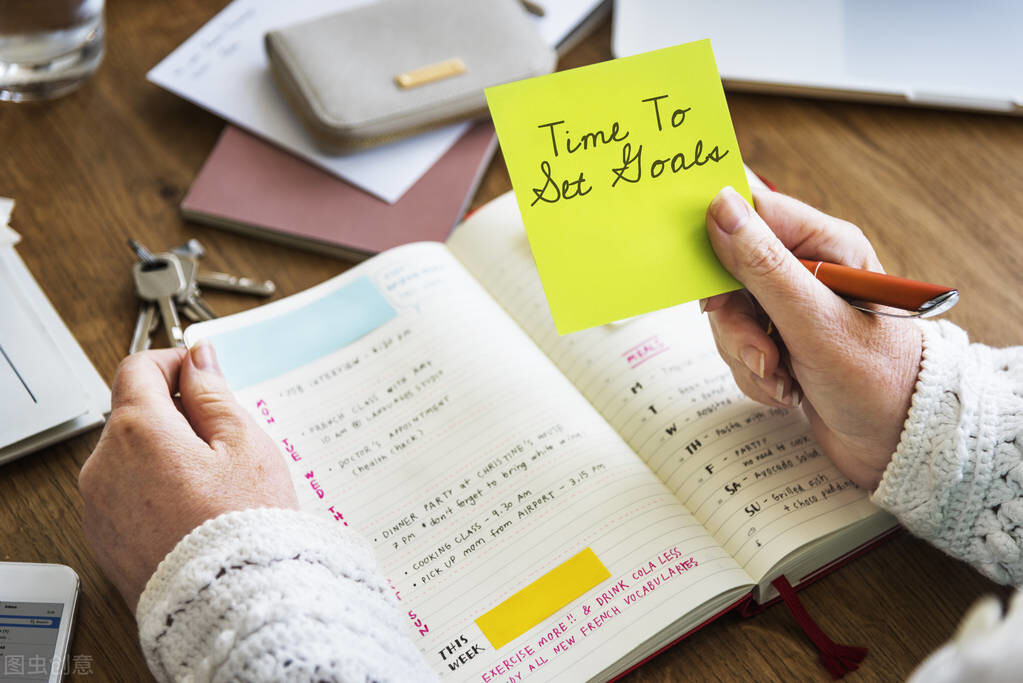 Time To
Set Goals
JOB INTERVIEW - 4:30 PM
FRENCH CLASS WITH AMY
10 AM @ LANGUAGES STUDIO
DOCTOR'S APPOINTMENT
(health check?)
DINNER PARTY at CHRISTINE'S HOUSE
7 PM *don't forget to bring white wine
COOKING CLASS - 9.30 AM
PICK UP mom from AIRPORT - 3.15 PM
MON TUE WED TH SUN
THIS
WEEK
EXERCISE MORE!! & DRINK COLA LESS
ALL NEW FRENCH VOCABULARIES
MEALS
M
T
W - Roasted
TH - Pasta with
F - PARTY no need to cook
SA - Avocado Salad
SU - Grilled fish
+ choco pudding
Inbox
图虫创意